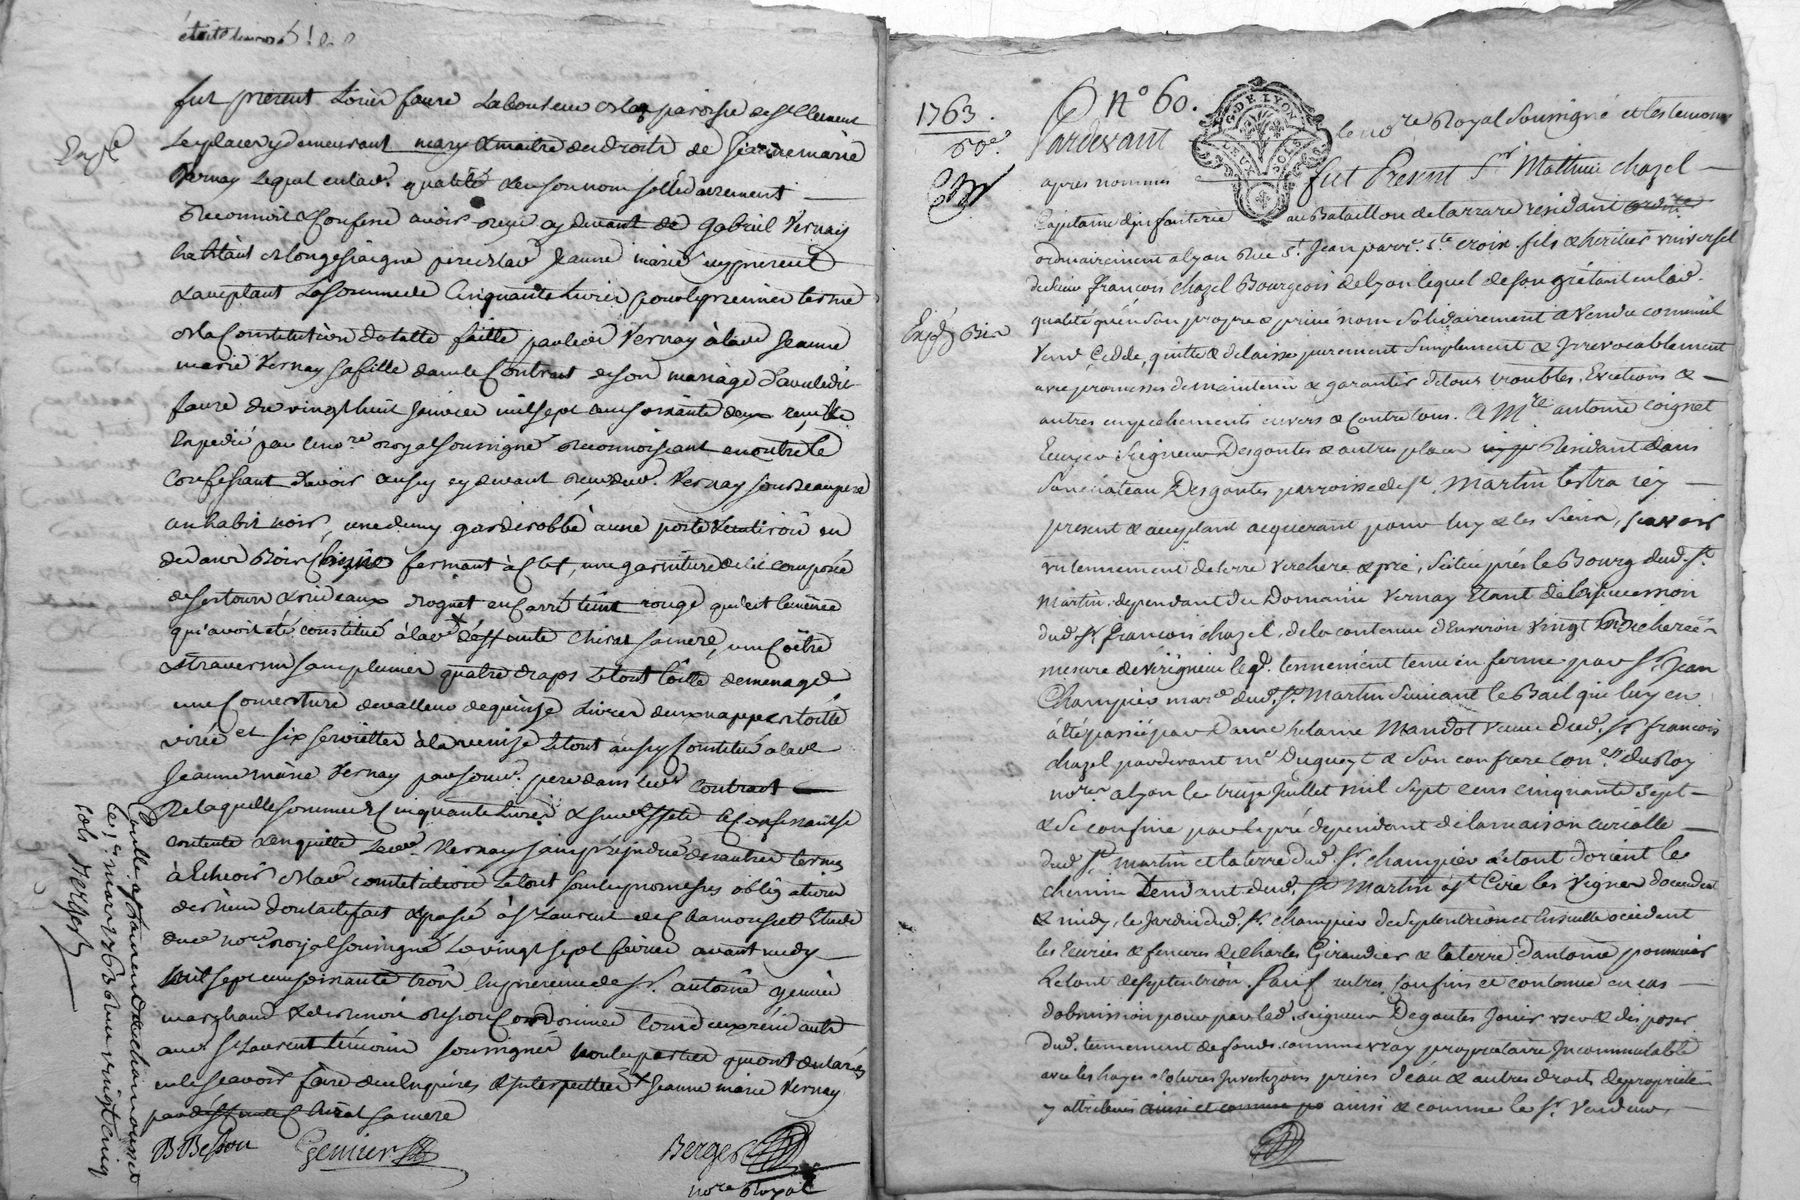 fut présent Louis faure Laboureur de la paroisse de St Clement
Les places y demeurant mary & maitre des droits de Jeanne marie
Vernay Lequel en lad. qualité & en son nom sollidairement
Reconnoit & Confesse avoir reçu cy devant de Gabriel Vernay
habitant de longessaigne pere de lad. Jeanne marie icy present
& acceptant La somme de Cinquante Livres pour le premier terme
de la Constitution dotalle faitte par led. Vernay à lad. Jeanne
marie Vernay sa fille dans le Contrat de son mariage avec ledit
faure du vingt huit Janvier mil sept cens soixante deux
Expedié par le nore royal soussigné reconnoissant en outre le
Confessant d'avoir aussy cy devant reçu dud. Vernay son beaupere
un habit noir, une garderobbe à une porte & un tiroir en
dedans Bois fermant à Clef, une garniture de lit composée
de ses tours & rideaux droguet en Carré teint rouge qu'est le même
qu'avoit été constitué à lad. deffunte Chirat sa mere, une Coëtre
& traversin sans plumes quatre draps Le tout toille de menage
une Couverture de valleur de quinze Livres deux nappes toille
et six serviettes à la venise Le tout aussy Constitué à lad.
Jeanne marie Vernay par son d. pere dans led. Contrat
De laquelle somme de Cinquante Livres & sus d. effets le Confessant se
contente & en quitte Led. Vernay sans préjudice des autres termes
à Echeoir de lad. constitution Le tout sous les promesses obligations
dont acte fait & passé à St Laurent de Chamousset Etude
dud. nore royal soussigné Le vingt sept février avant midy
mil sept cens soixante trois En presence de Sr. antoine genier
marchand & de tous deux résidants
aud. St Laurent témoins soussignés non les parties qui ont declaré
ne le sçavoir faire de ce Enquises & Interpellées Jeanne marie Vernay
par deffunte Chirat sa mere
B Besson Genier Berger
nore Royal
Expé
Controllé à St Laurent de chamousset
le 1er mars 1763 Reçu vingt cinq
sols Berger
1763.
N° 60.
G. DE LYON
DEUX SOLS
Pardevant le nore Royal Soussigné et les temoins
après nommés fut Present Sr Mathieu Chazel
Capitaine d'infanterie au Bataillon de tarrare résidant
ordinairement à lyon Rue St. Jean parr. Ste croix, fils & heritier universel
de sieur françois Chazel Bourgeois de lyon lequel de son gré tant en lad.
qualité qu'en son propre & privé nom Solidairement a Vendu comme il
Vend Cedde, quitte & delaisse purement Simplement & Irrevocablement
avec promesses de maintenir & garantir de tous troubles, Evictions &
autres empechements envers & Contre tous. A Mre antoine Coignet
Ecuyer Seigneur Desgouttes & autres places Residant dans
Son chateau Desgouttes parroisse de St. Martin lestra icy
present & acceptant acquerant pour luy & les Siens, sçavoir
un tennement de terre verchere & pré, Situé près le Bourg dud. St.
Martin, dependant du Domaine Vernay Etant de la succession
dud. Sr. françois Chazel, de la contenue d'Environ Vingt Bicherées
mesure de led. tennement tenu en ferme par Sr. Jean
Champier mar. dud. St. Martin Suivant le Bail qui luy en
a été passé par Dame helaine Mandot veuve dud. Sr. françois
Chazel pardevant me Duguey & Son confrere Con.ers du Roy
nores a lyon le treize Juillet mil Sept cens cinquante Sept
& Se confine par le pré dependant de la maison curialle
dud. St. martin et la terre dud. Sr. Champier Le tout d'orient le
chemin Tendant dud. St. Martin à St. Cire les Vignes d'occident
& midy, le Jardin dud. Sr. Champier de Septentrion et Ensuitte occident
les Ecuries & fenieres de Charles Giraudier & la terre d'antoine pommier
Le tout de Septentrion. Sauf autres Confins et contenue en cas
d'obmission pour par led. Seigneur Degouttes Jouir user & disposer
dud. tennement de fonds comme vray proprietaire Incommutable
avec les hayes clotures Investizons prises d'eau & autres droits de proprieté
y attribués ainsi & comme le Sr. Vendeur
Expé Bis